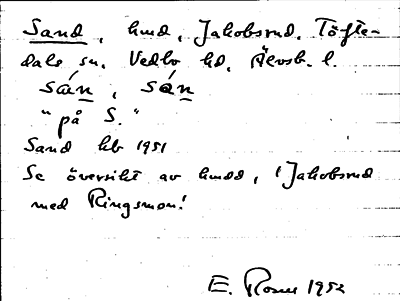 Sand, hmd, Jakobsrud, Töfte-
dals sn. Vedbo hd. Älvsb. l.
sán, sán
"på S."
Sand kb 1951
Se översikt av hmdd, i Jakobsrud
med Ringsmon!
E. Rosn 1952